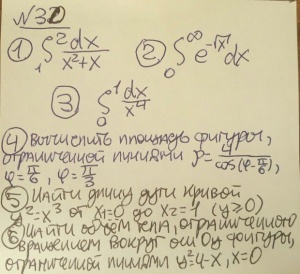 №30
① ∫₁² dx/(x²+x) ② ∫₀^∞ e^(-√x) dx
③ ∫₀¹ dx/x⁴
④ Вычислить площадь фигуры,
ограниченной линиями ρ = 4/cos(φ-π/6),
φ=π/6, φ=π/3
⑤ Найти длину дуги кривой
y²=x³ от x₁=0 до x₂=1 (y≥0)
⑥ Найти объем тела, ограниченного
вращением вокруг оси Oy фигуры,
ограниченной линиями y²=4-x, x=0